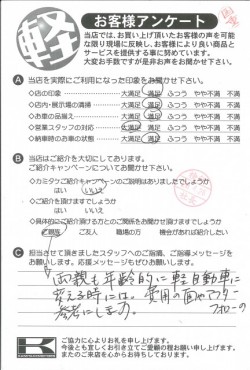 軽
お客様アンケート
当店では、お買い上げ頂いたお客様の声を可能
な限り現場に反映し、お客様により良い商品と
サービスを提供する事に努めています。
大変お手数ですが是非お声をお聞かせ下さい。
A 当店を実際にご利用になった印象をお聞かせ下さい。
◇店の印象 大満足 満足 ふつう やや不満 不満
◇店内・展示場の清掃 大満足 満足 ふつう やや不満 不満
◇お車の品揃え 大満足 満足 ふつう やや不満 不満
◇営業スタッフの対応 大満足 満足 ふつう やや不満 不満
◇納車時のお車の状態 大満足 満足 ふつう やや不満 不満
B 当店はご紹介を大切にしております。
ご紹介キャンペーンについてお聞かせ下さい。
◇カミタケご紹介キャンペーンのご説明はありましたでしょうか
はい いいえ
◇ご紹介を頂けますでしょうか
はい いいえ
◇具体的にご紹介頂ける方とのご関係をお聞かせ頂けますでしょうか
ご親族 ご友人 職場の方 機会があれば紹介したい
C 担当させて頂きましたスタッフへのご指摘、ご指導メッセージを
お願いします。応援メッセージもぜひお願いします。
両親も年齢的に軽自動車に
変える時には、費用の面やアフター
フォローの
参考にします。
K
ご協力に心よりお礼を申し上げます。
今後とも宜しくお引き立てご愛顧の程お願い申し上げます。
またのご来店を心からお待ちしております。